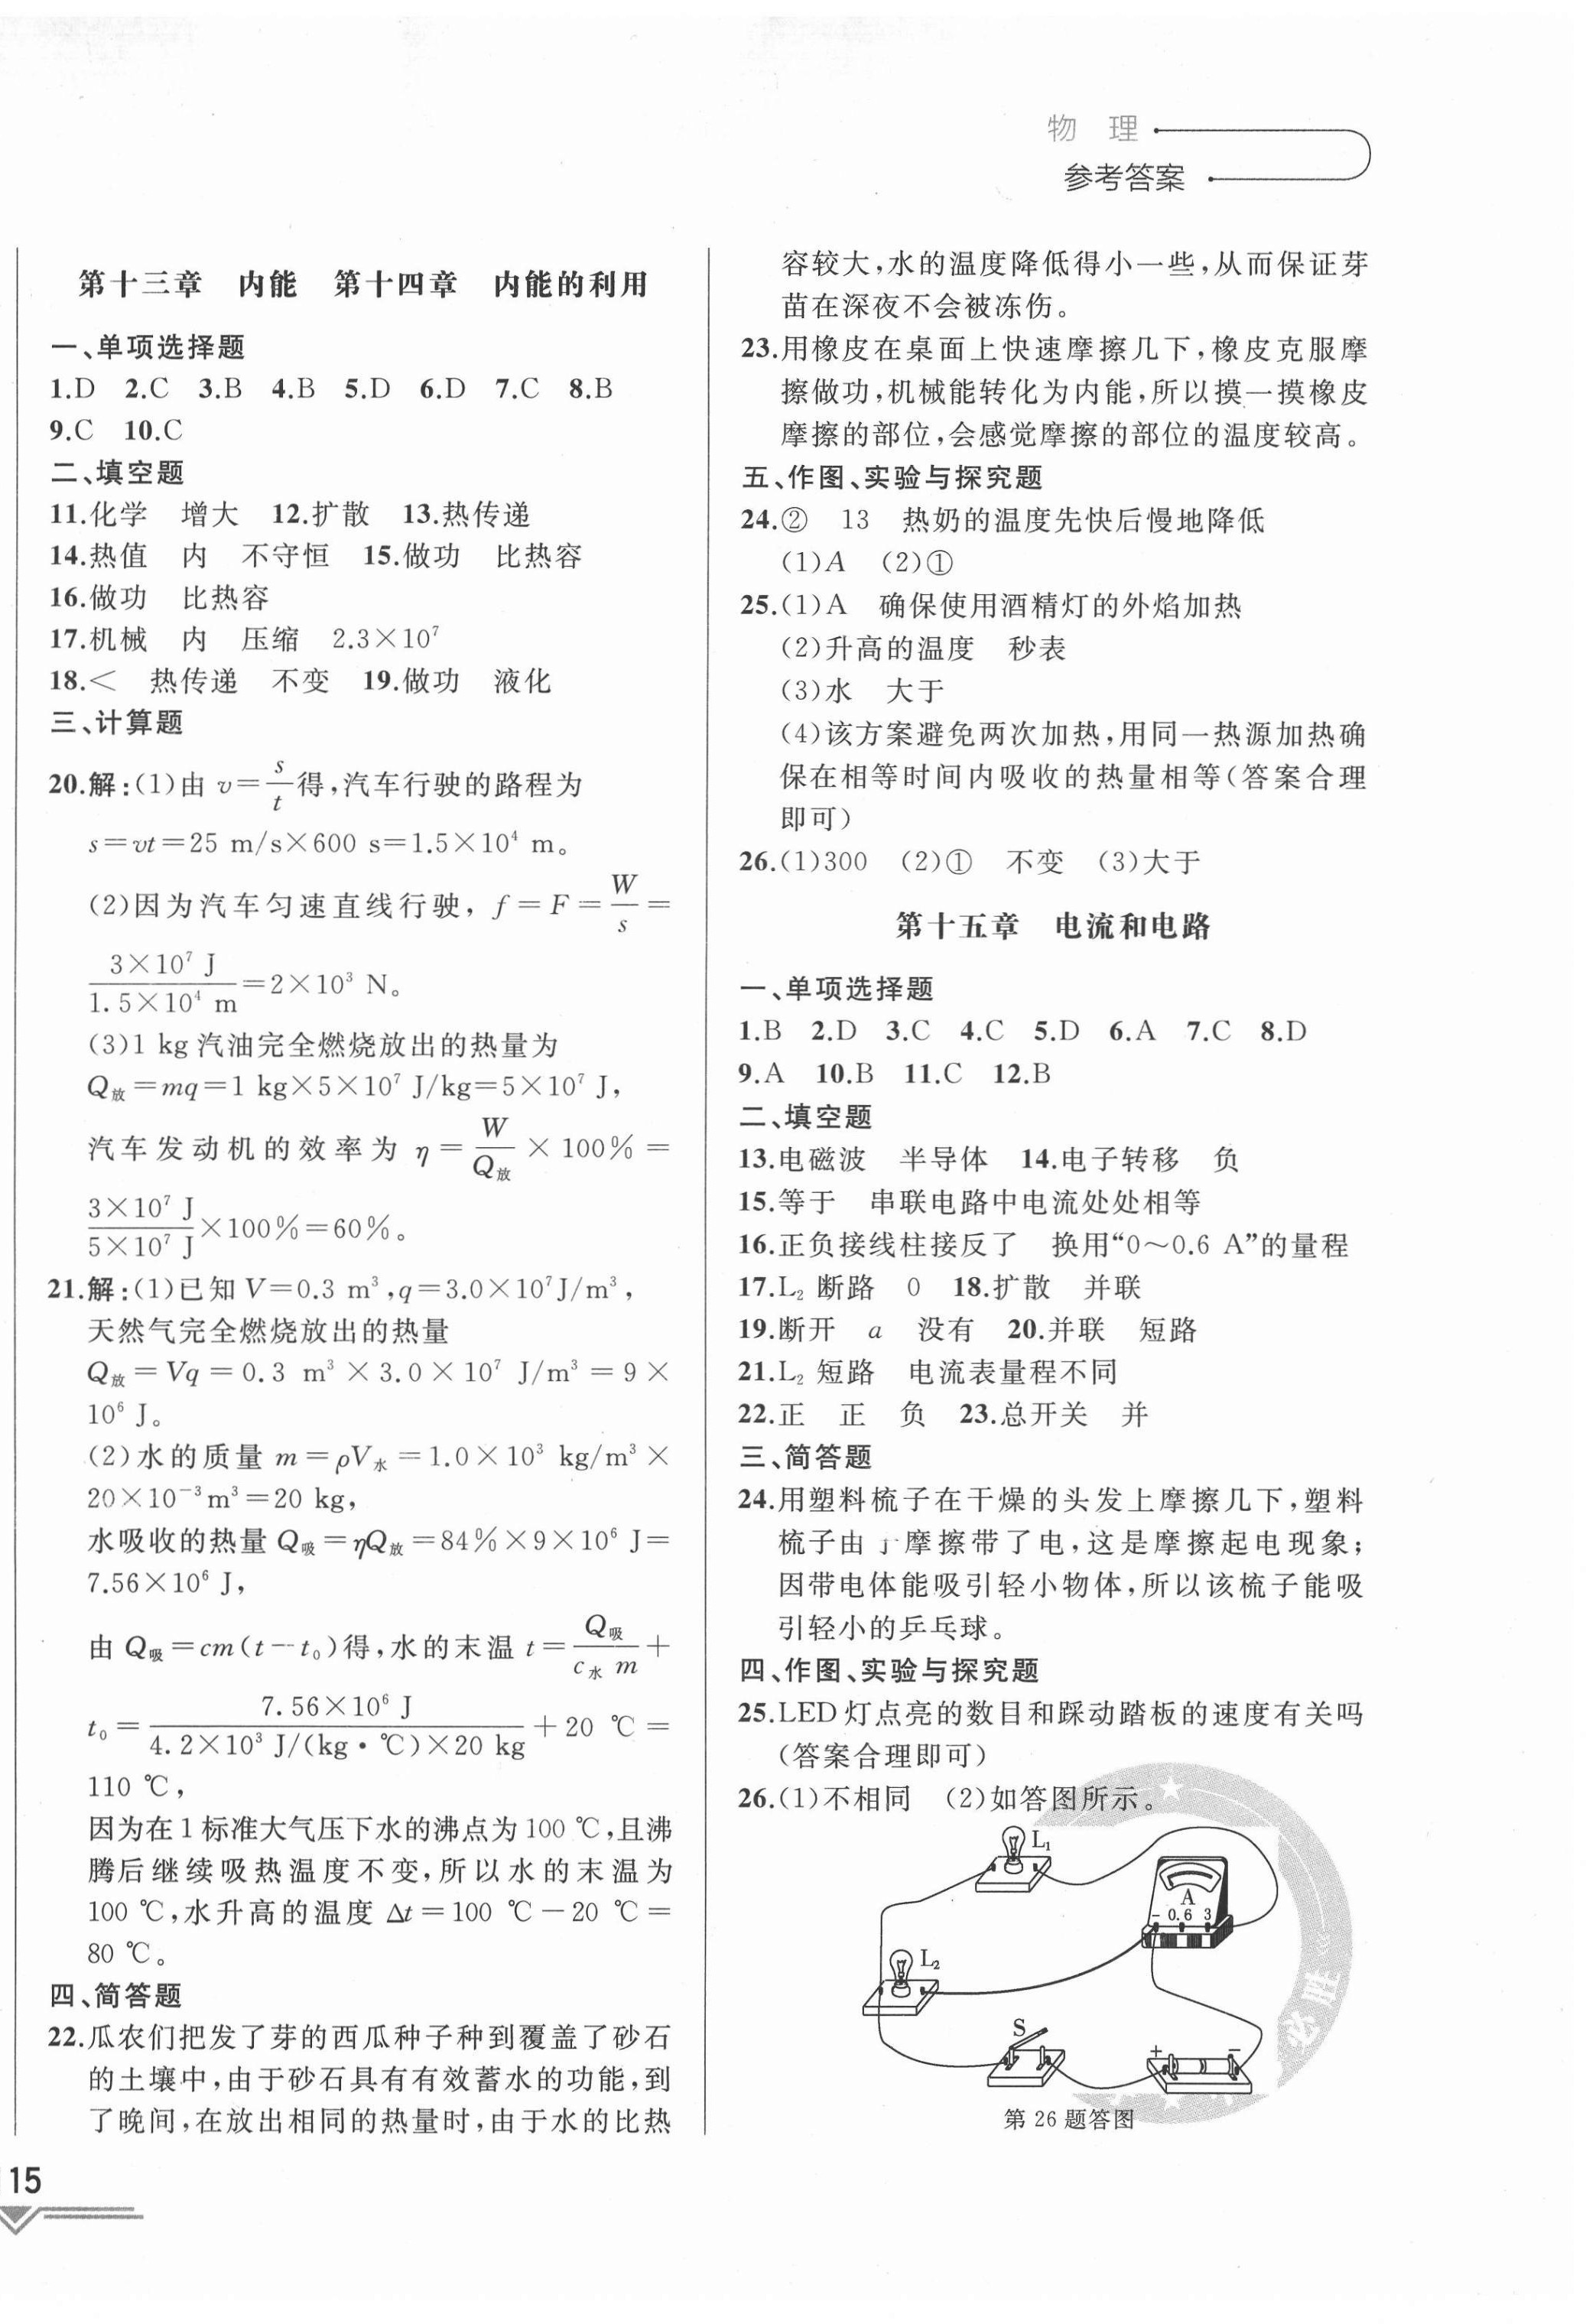 物 理
参考答案
第十三章 内能 第十四章 内能的利用
一、单项选择题
1.D 2.C 3.B 4.B 5.D 6.D 7.C 8.B
9.C 10.C
二、填空题
11.化学 增大 12.扩散 13.热传递
14.热值 内 不守恒 15.做功 比热容
16.做功 比热容
17.机械 内 压缩 2.3×10⁷
18.< 热传递 不变 19.做功 液化
三、计算题
20.解:(1)由 v=s/t得,汽车行驶的路程为
s=vt=25 m/s×600 s=1.5×10⁴ m。
(2)因为汽车匀速直线行驶, f=F=W/s=
3×10⁷ J/1.5×10⁴ m=2×10³ N。
(3)1 kg汽油完全燃烧放出的热量为
Q放=mq=1 kg×5×10⁷ J/kg=5×10⁷ J,
汽车发动机的效率为 η=W/Q放×100%=
3×10⁷ J/5×10⁷ J×100%=60%。
21.解:(1)已知 V=0.3 m³,q=3.0×10⁷J/m³,
天然气完全燃烧放出的热量
Q放=Vq=0.3 m³×3.0×10⁷ J/m³=9×
10⁶ J。
(2)水的质量 m=ρV水=1.0×10³ kg/m³×
20×10⁻³m³=20 kg,
水吸收的热量 Q吸=ηQ放=84%×9×10⁶ J=
7.56×10⁶ J,
由 Q吸=cm(t-t₀)得,水的末温 t=Q吸/c水 m+
t₀=7.56×10⁶ J/4.2×10³ J/(kg·℃)×20 kg+20 ℃=
110 ℃,
因为在1标准大气压下水的沸点为100 ℃,且沸
腾后继续吸热温度不变,所以水的末温为
100 ℃,水升高的温度 Δt=100 ℃-20 ℃=
80 ℃。
四、简答题
22.瓜农们把发了芽的西瓜种子种到覆盖了砂石
的土壤中,由于砂石具有有效蓄水的功能,到
了晚间,在放出相同的热量时,由于水的比热
15
容较大,水的温度降低得小一些,从而保证芽
苗在深夜不会被冻伤。
23.用橡皮在桌面上快速摩擦几下,橡皮克服摩
擦做功,机械能转化为内能,所以摸一摸橡皮
摩擦的部位,会感觉摩擦的部位的温度较高。
五、作图、实验与探究题
24.② 13 热奶的温度先快后慢地降低
(1)A (2)①
25.(1)A 确保使用酒精灯的外焰加热
(2)升高的温度 秒表
(3)水 大于
(4)该方案避免两次加热,用同一热源加热确
保在相等时间内吸收的热量相等(答案合理
即可)
26.(1)300 (2)① 不变 (3)大于
第十五章 电流和电路
一、单项选择题
1.B 2.D 3.C 4.C 5.D 6.A 7.C 8.D
9.A 10.B 11.C 12.B
二、填空题
13.电磁波 半导体 14.电子转移 负
15.等于 串联电路中电流处处相等
16.正负接线柱接反了 换用“0~0.6 A”的量程
17.L₂ 断路 0 18.扩散 并联
19.断开 a 没有 20.并联 短路
21.L₂ 短路 电流表量程不同
22.正 正 负 23.总开关 并
三、简答题
24.用塑料梳子在干燥的头发上摩擦几下,塑料
梳子由于摩擦带了电,这是摩擦起电现象;
因带电体能吸引轻小物体,所以该梳子能吸
引轻小的乒乓球。
四、作图、实验与探究题
25.LED灯点亮的数目和踩动踏板的速度有关吗
(答案合理即可)
26.(1)不相同 (2)如答图所示。
L₁
A
- 0.6 3
L₂
S
+ -
必胜
第 26 题答图